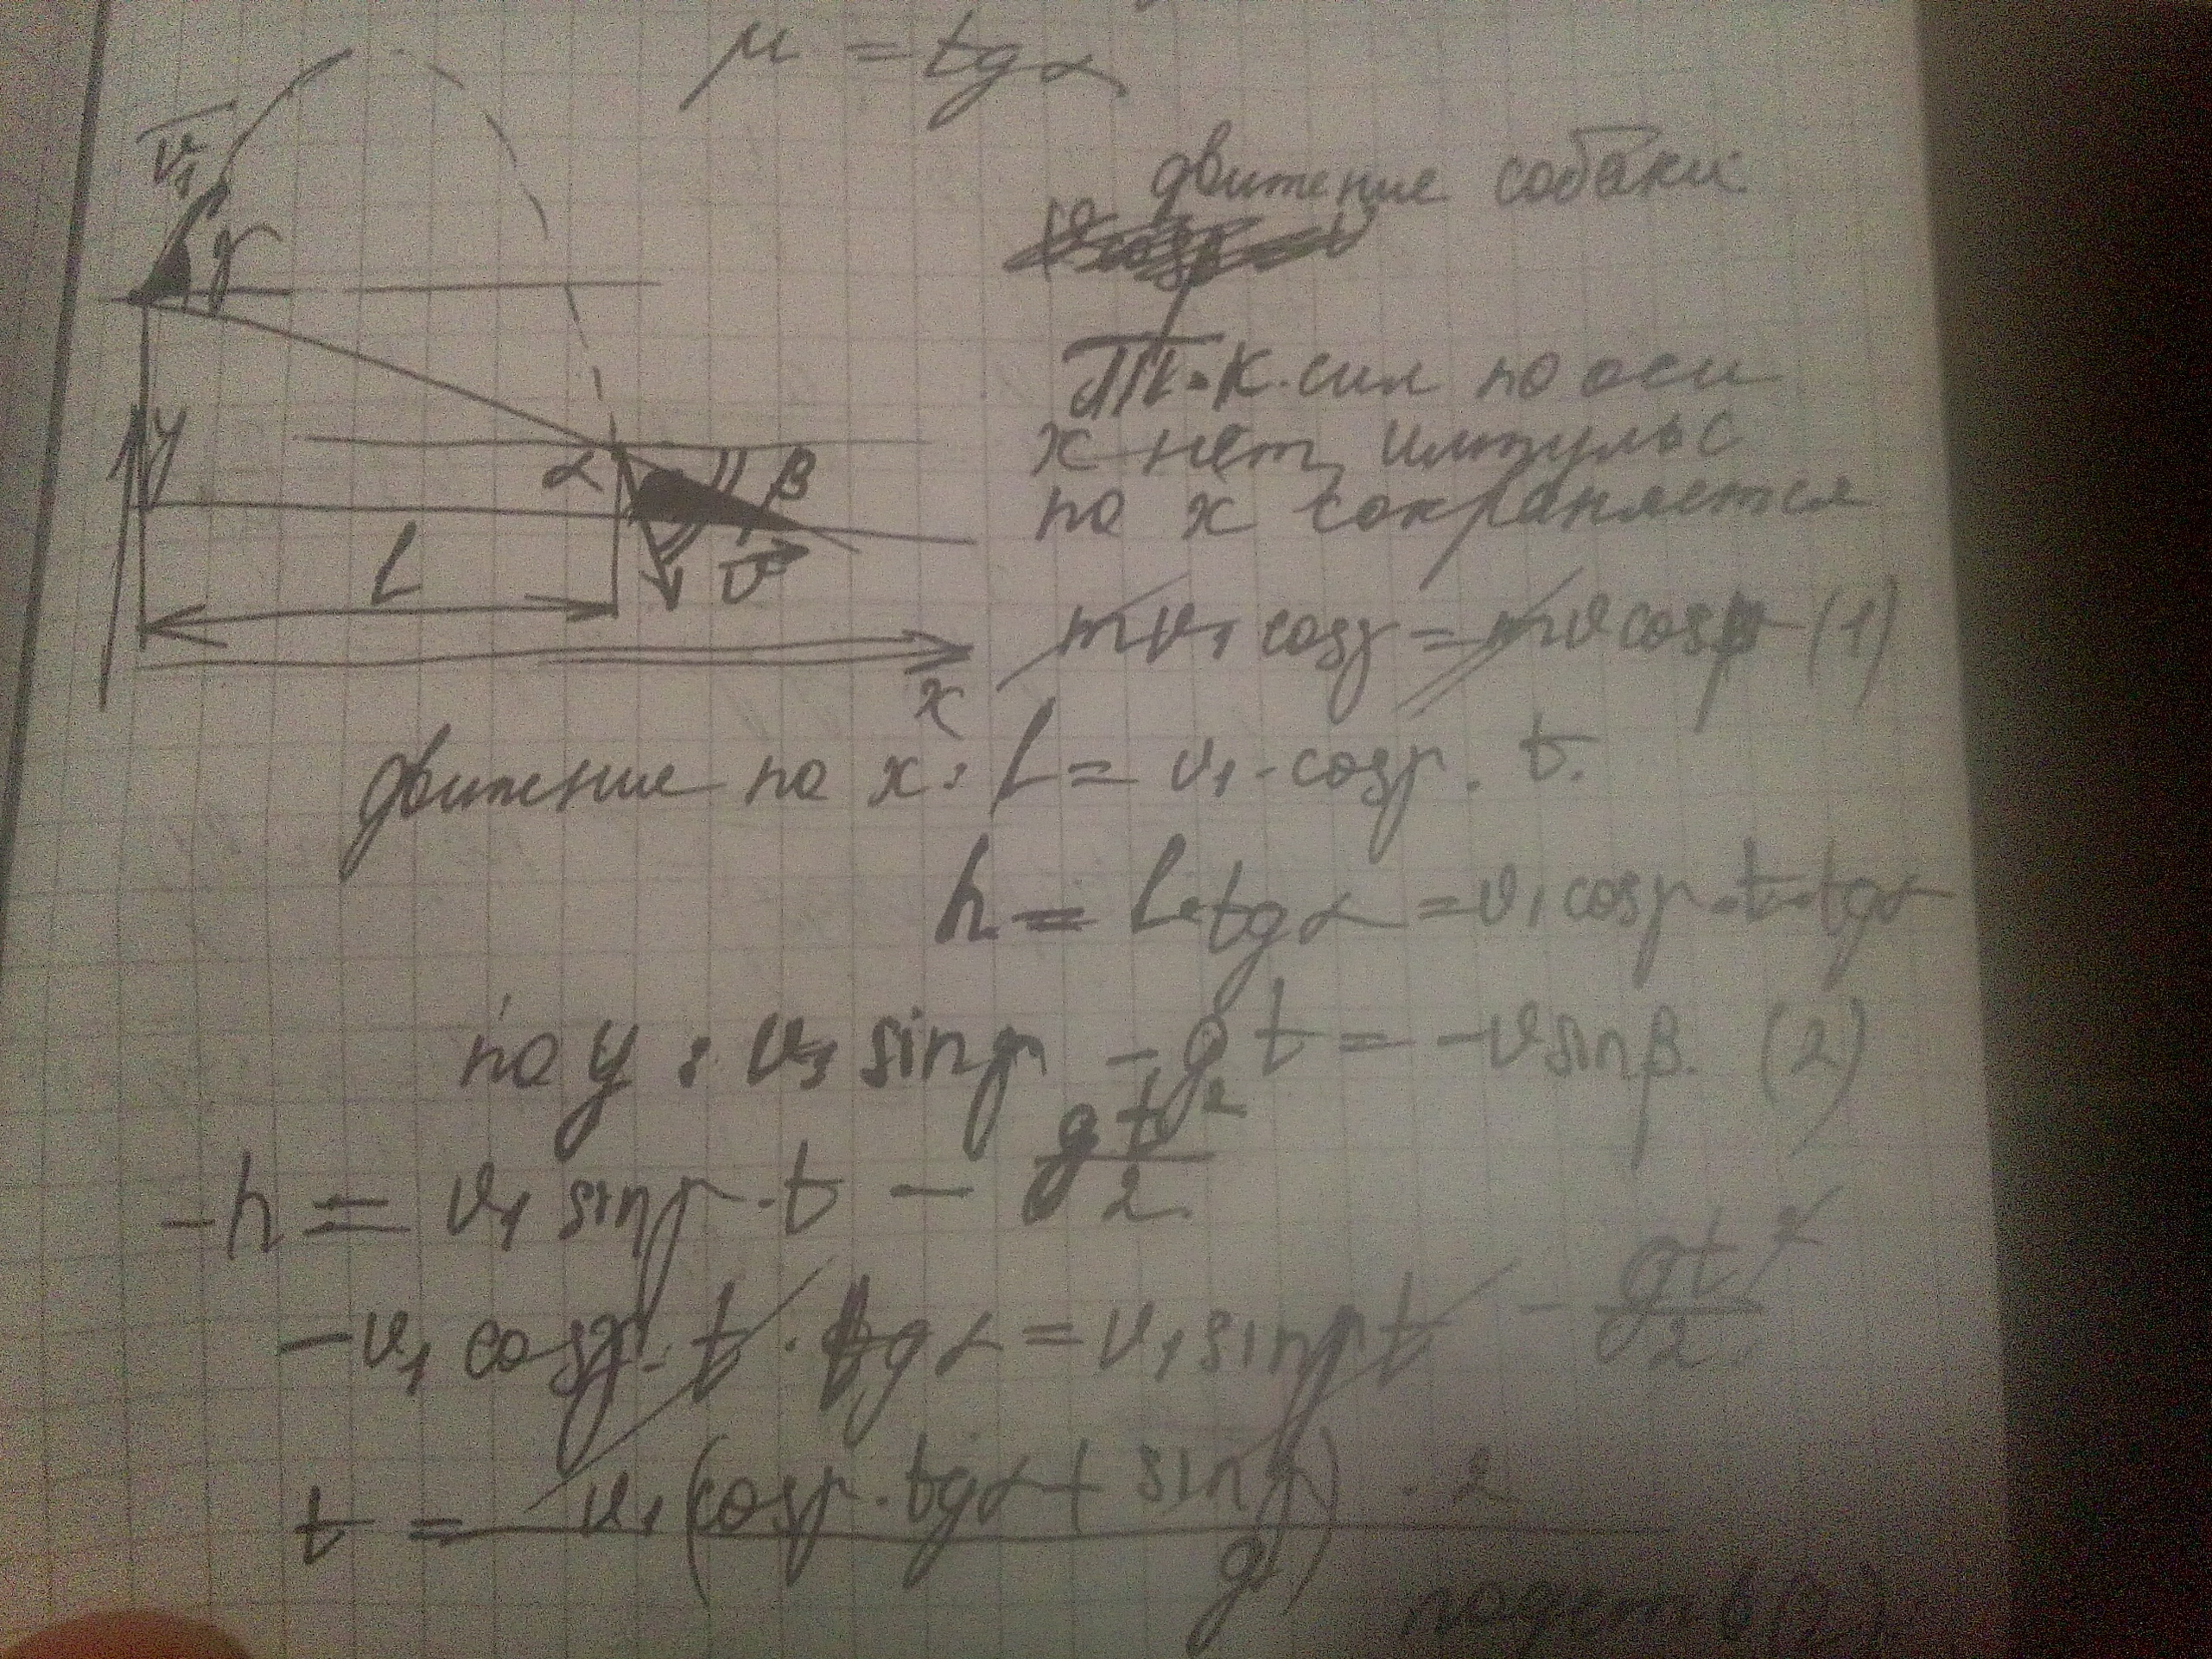 μ = tg α
v₁
γ
движение собаки
Т.к. сил по оси
x нет, импульс
по x сохраняется
y
α
β
L
v
x
mv₁ cosγ = mv cosβ (1)
движение по x: L = v₁ · cosγ · t.
h = L·tg α = v₁ cosγ · t · tg α
по y: v₁ sinγ - gt = -v sinβ. (2)
-h = v₁ sinγ · t - gt²/2.
-v₁ cosγ · t · tg α = v₁ sinγ t - gt²/2.
t = v₁ (cosγ · tg α + sinγ) · 2 / g
подст в (2)